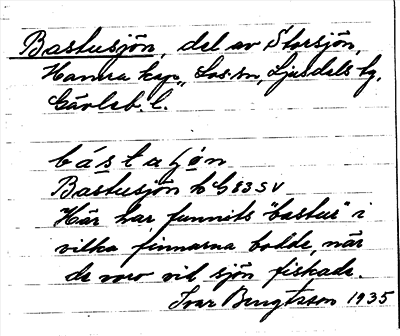 Bastusjön, del av Storsjön,
Hamra kap., Los sn, Ljusdals tg,
Gävleb. l.
bástuʃön
Bastusjön k G 83 SV
Här har funnits "bastus" i
vilka finnarna bodde, när
de voro vid sjön fiskade.
Ivar Bengtsson 1935